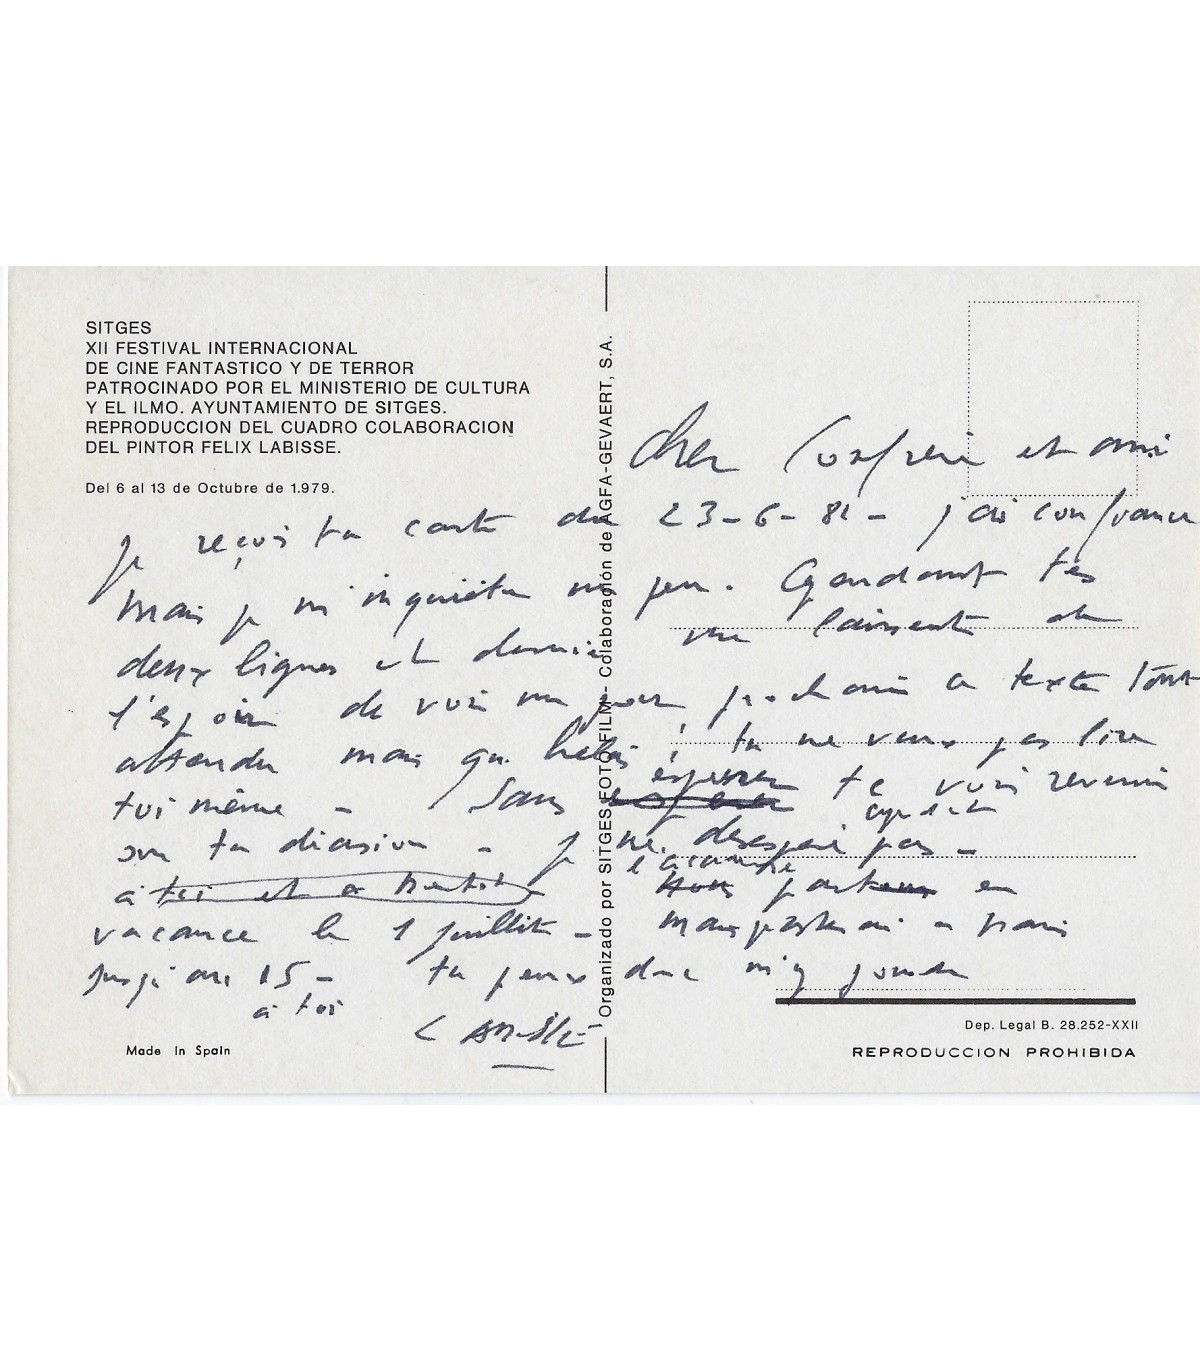 SITGES
XII FESTIVAL INTERNACIONAL
DE CINE FANTASTICO Y DE TERROR
PATROCINADO POR EL MINISTERIO DE CULTURA
Y EL ILMO. AYUNTAMIENTO DE SITGES.
REPRODUCCION DEL CUADRO COLABORACION
DEL PINTOR FELIX LABISSE.
Del 6 al 13 de Octubre de 1.979.
Organizado por SITGES FOTO-FILM - Colaboración de AGFA-GEVAERT, S.A.
Cher Confrère et ami
Je reçois ta carte du 23-6-81 - j'ai confiance
mais je m'inquiète un peu. Cependant tes
deux lignes et me laissent de
l'espoir de voir un jour prochain ce texte tant
attendu mais que hélas ; tu ne veux pas lire
toi même - Sans espérer te voir revenir
sur ta décision - je ne désespère pas -
cependant
à toi et à
l'académie part en
vacance le 1 juillet - mais à Paris
jusqu'au 15 - tu peux donc m'y joindre
à toi
LABISSE
Made in Spain
Dep. Legal B. 28.252-XXII
REPRODUCCION PROHIBIDA